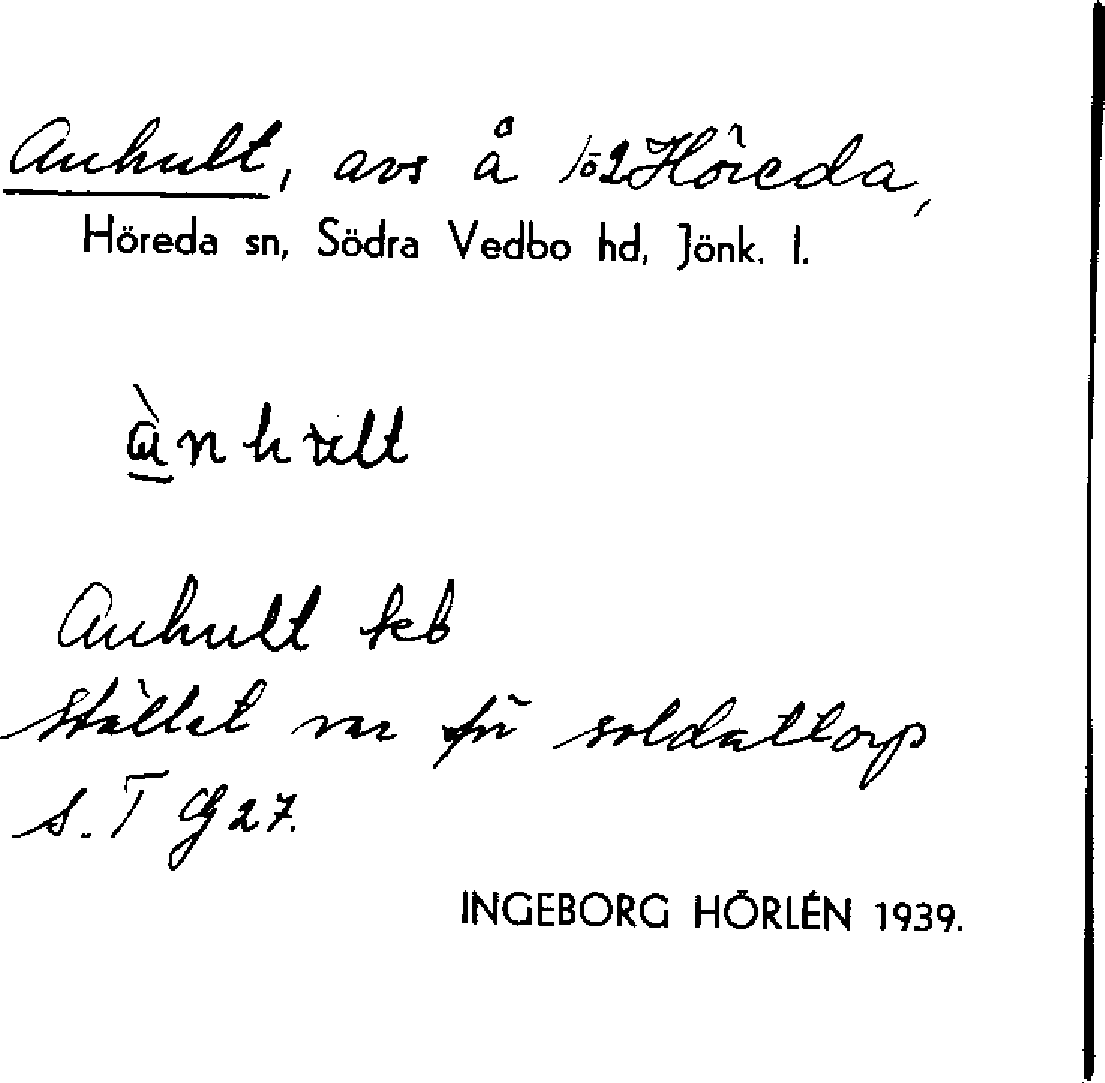 Anhult, avs å lö2 Höreda,
Höreda sn, Södra Vedbo hd, Jönk. l.
Anhult kb
Stället var för soldattorp
s. T G 27.
INGEBORG HÖRLÉN 1939.